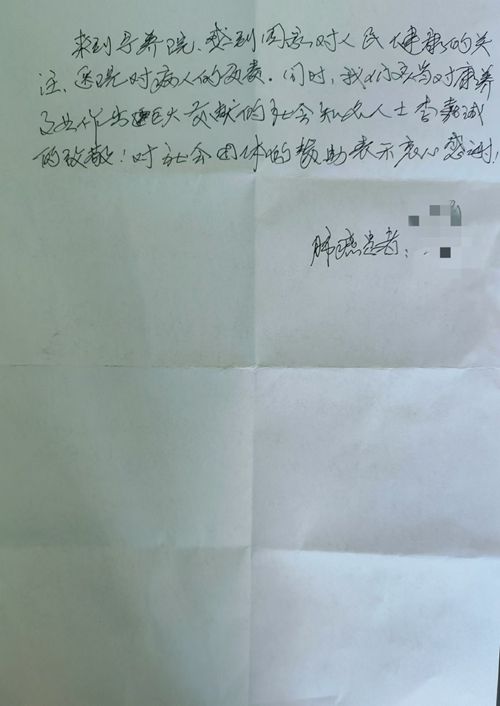 来到宁养院、感到国家对人民健康的关
注、体现对病人的负责。同时,我们要为对康养
工作出巨大贡献的社会知名人士李嘉诚
的致敬!对社会团体的赞助表示衷心感谢!
肺癌患者: